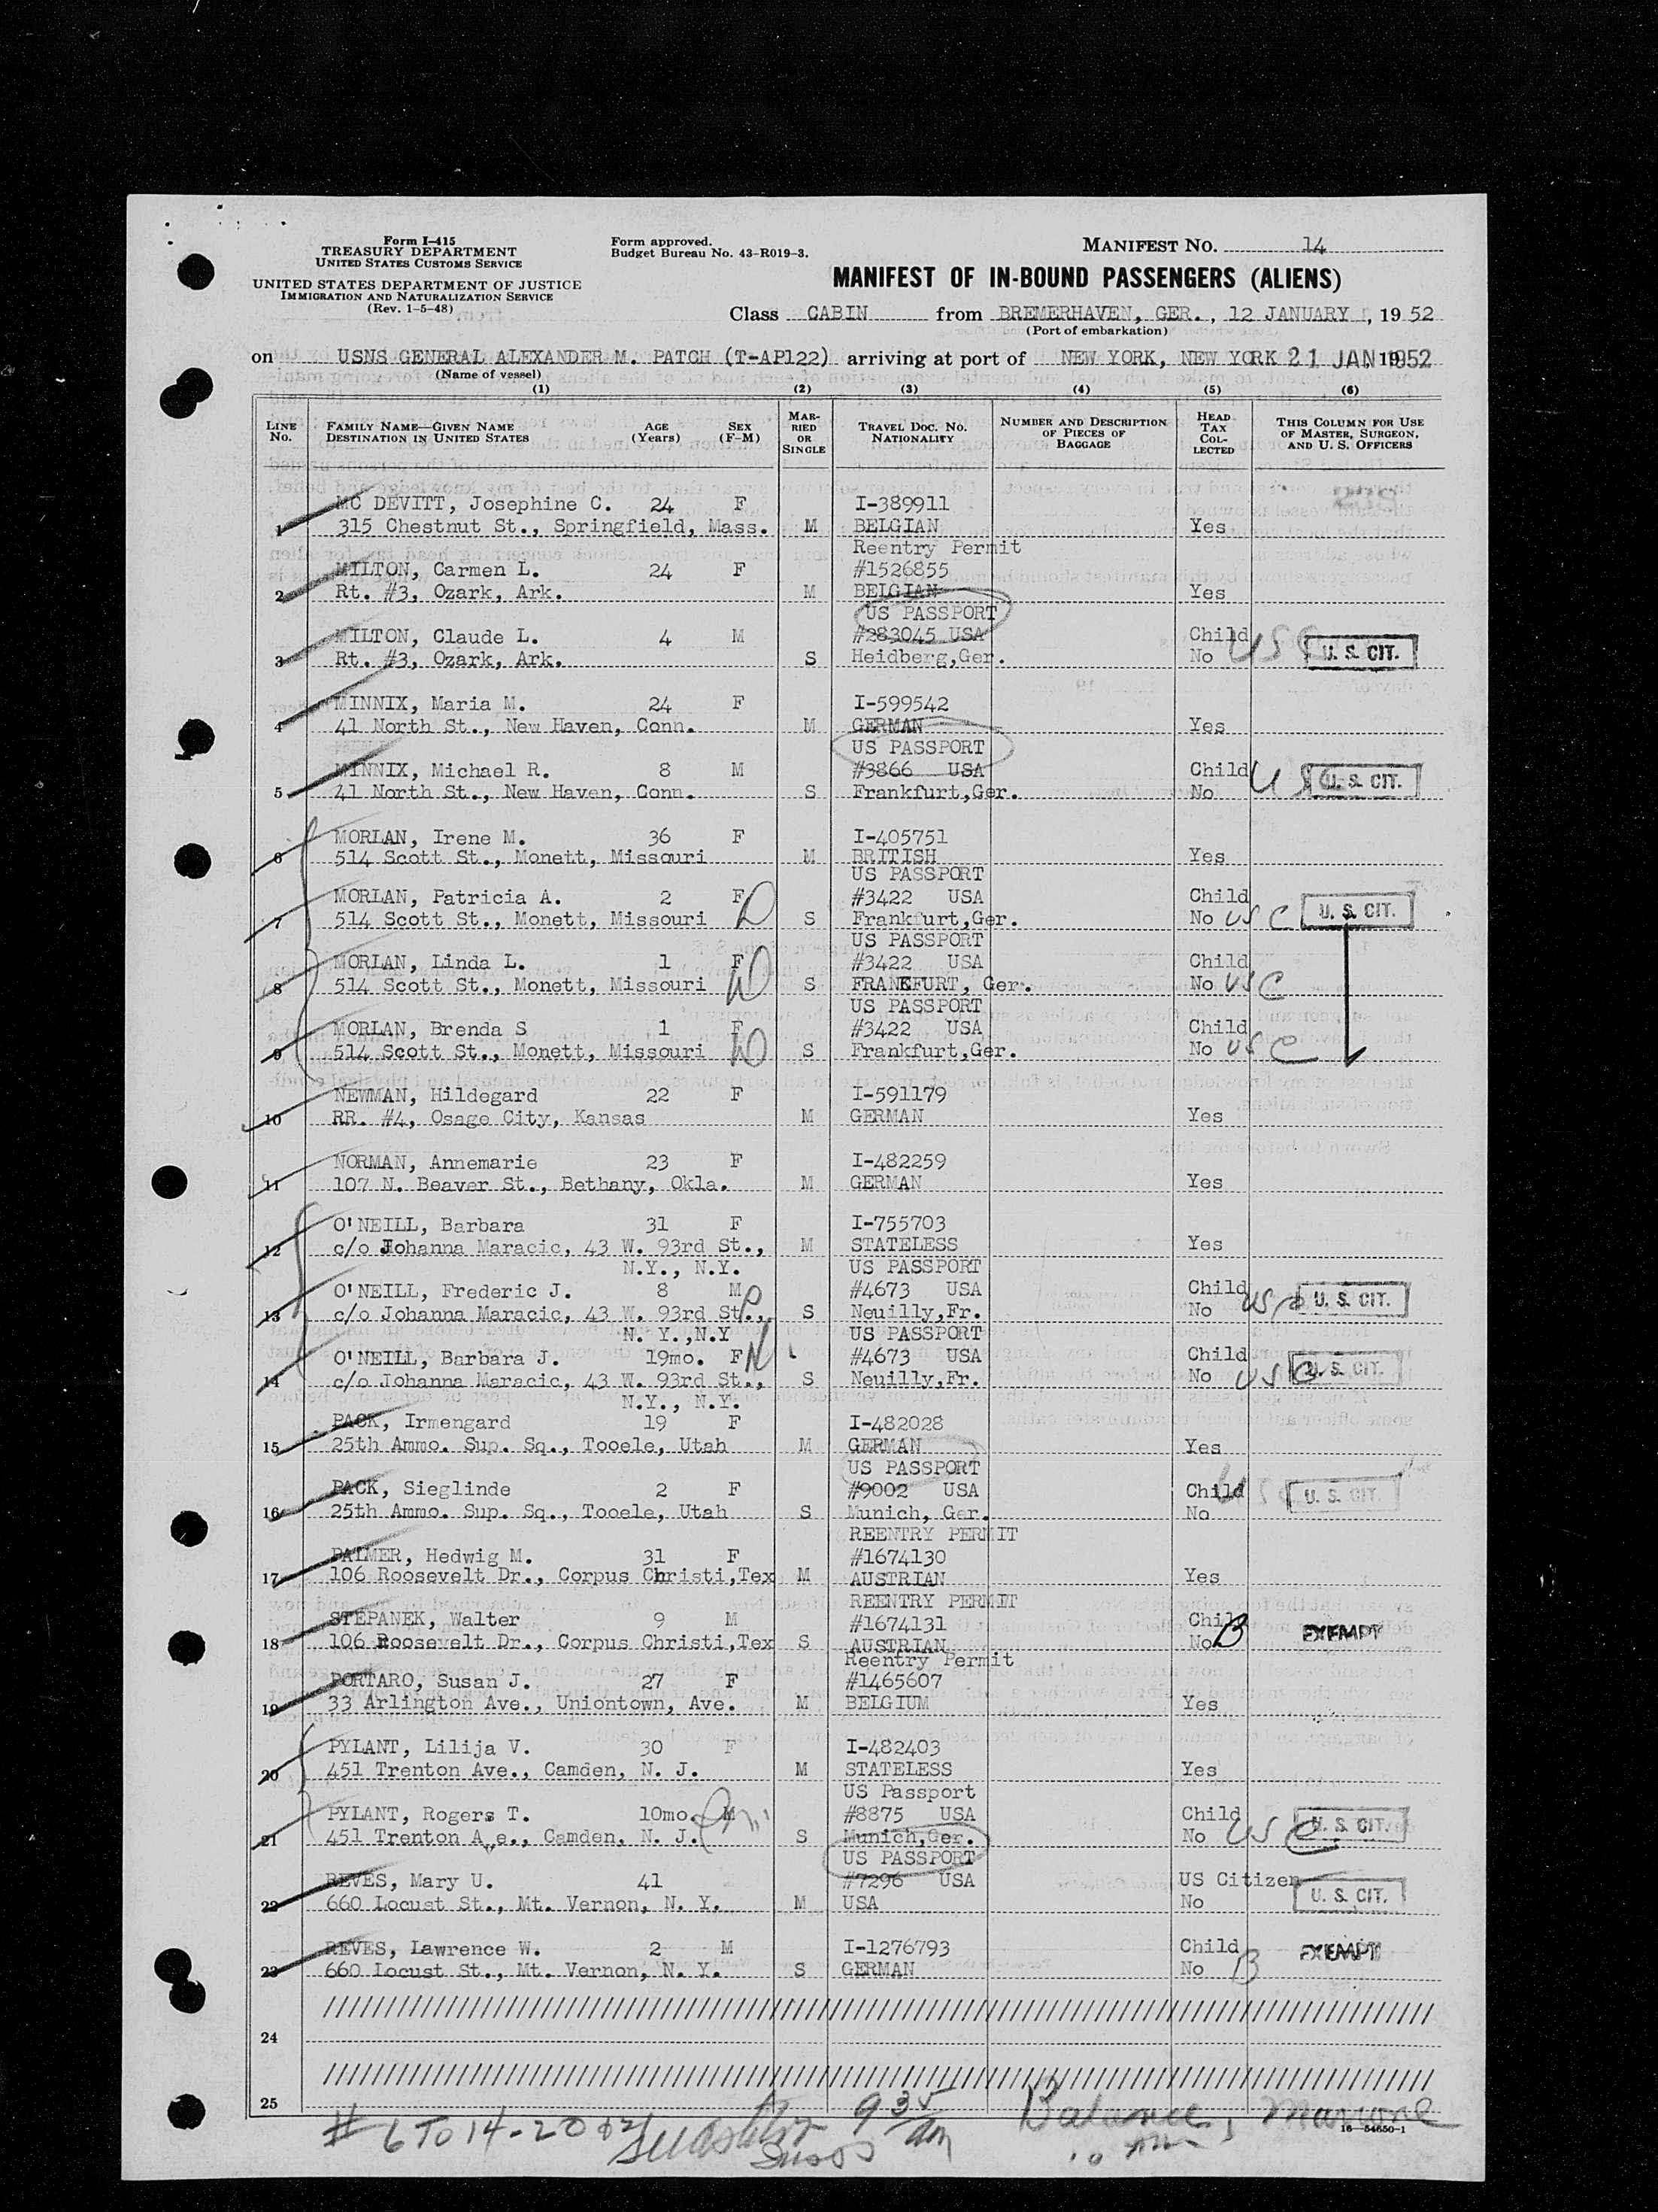 Form I-415
TREASURY DEPARTMENT
UNITED STATES CUSTOMS SERVICE
UNITED STATES DEPARTMENT OF JUSTICE
IMMIGRATION AND NATURALIZATION SERVICE
(Rev. 1-5-48)
Form approved.
Budget Bureau No. 43-R019-3.
MANIFEST NO. 14
MANIFEST OF IN-BOUND PASSENGERS (ALIENS)
Class CABIN from BREMERHAVEN, GER., 12 JANUARY, 19 52
(Port of embarkation)
on USNS GENERAL ALEXANDER M. PATCH (T-AP122) arriving at port of NEW YORK, NEW YORK 21 JAN 1952
(Name of vessel)
(1) (2) (3) (4) (5) (6)
LINE No. FAMILY NAME—GIVEN NAME DESTINATION IN UNITED STATES AGE (Years) SEX (F-M) MARRIED OR SINGLE TRAVEL DOC. NO. NATIONALITY NUMBER AND DESCRIPTION OF PIECES OF BAGGAGE HEAD TAX COLLECTED THIS COLUMN FOR USE OF MASTER, SURGEON, AND U. S. OFFICERS
MC DEVITT, Josephine C. 24 F I-389911
1 315 Chestnut St., Springfield, Mass. M BELGIAN Yes
Reentry Permit
MILTON, Carmen L. 24 F #1526855
2 Rt. #3, Ozark, Ark. M BELGIAN Yes
US PASSPORT
MILTON, Claude L. 4 M #283045 USA Child
3 Rt. #3, Ozark, Ark. S Heidberg,Ger. No USC U. S. CIT.
MINNIX, Maria M. 24 F I-599542
4 41 North St., New Haven, Conn. M GERMAN Yes
US PASSPORT
MINNIX, Michael R. 8 M #3866 USA Child
5 41 North St., New Haven, Conn. S Frankfurt,Ger. No USC U. S. CIT.
MORLAN, Irene M. 36 F I-405751
6 514 Scott St., Monett, Missouri M BRITISH Yes
US PASSPORT
MORLAN, Patricia A. 2 F #3422 USA Child
7 514 Scott St., Monett, Missouri S Frankfurt,Ger. No USC U. S. CIT.
US PASSPORT
MORLAN, Linda L. 1 F #3422 USA Child
8 514 Scott St., Monett, Missouri S FRANKFURT, Ger. No USC
US PASSPORT
MORLAN, Brenda S 1 F #3422 USA Child
9 514 Scott St., Monett, Missouri S Frankfurt,Ger. No USC
NEWMAN, Hildegard 22 F I-591179
10 RR. #4, Osage City, Kansas M GERMAN Yes
NORMAN, Annemarie 23 F I-482259
11 107 N. Beaver St., Bethany, Okla. M GERMAN Yes
O'NEILL, Barbara 31 F I-755703
12 c/o Johanna Maracic, 43 W. 93rd St., M STATELESS Yes
N.Y., N.Y. US PASSPORT
O'NEILL, Frederic J. 8 M #4673 USA Child
13 c/o Johanna Maracic, 43 W. 93rd St., S Neuilly,Fr. No USC U. S. CIT.
N. Y.,N.Y US PASSPORT
O'NEILL, Barbara J. 19mo. F #4673 USA Child
14 c/o Johanna Maracic, 43 W. 93rd St., S Neuilly,Fr. No USC U. S. CIT.
N.Y., N.Y.
PACK, Irmengard 19 F I-482028
15 25th Ammo. Sup. Sq., Tooele, Utah M GERMAN Yes
US PASSPORT
PACK, Sieglinde 2 F #9002 USA Child
16 25th Ammo. Sup. Sq., Tooele, Utah S Munich, Ger. No USC U. S. CIT.
REENTRY PERMIT
PALMER, Hedwig M. 31 F #1674130
17 106 Roosevelt Dr., Corpus Christi,Tex M AUSTRIAN Yes
REENTRY PERMIT
STEPANEK, Walter 9 M #1674131 Child
18 106 Roosevelt Dr., Corpus Christi,Tex S AUSTRIAN No B EXEMPT
Reentry Permit
PORTARO, Susan J. 27 F #1465607
19 33 Arlington Ave., Uniontown, Ave. M BELGIUM Yes
PYLANT, Lilija V. 30 F I-482403
20 451 Trenton Ave., Camden, N. J. M STATELESS Yes
US Passport
PYLANT, Rogers T. 10mo. M #8875 USA Child
21 451 Trenton Ave., Camden, N. J. S Munich,Ger. No USC U. S. CIT.
US PASSPORT
REVES, Mary U. 41 #7296 USA US Citizen
22 660 Locust St., Mt. Vernon, N. Y. M USA No U. S. CIT.
REVES, Lawrence W. 2 M I-1276793 Child
23 660 Locust St., Mt. Vernon, N. Y. S GERMAN No B EXEMPT
24
25
# 6 To 14-20 9 35 am Balance,
16—54650-1